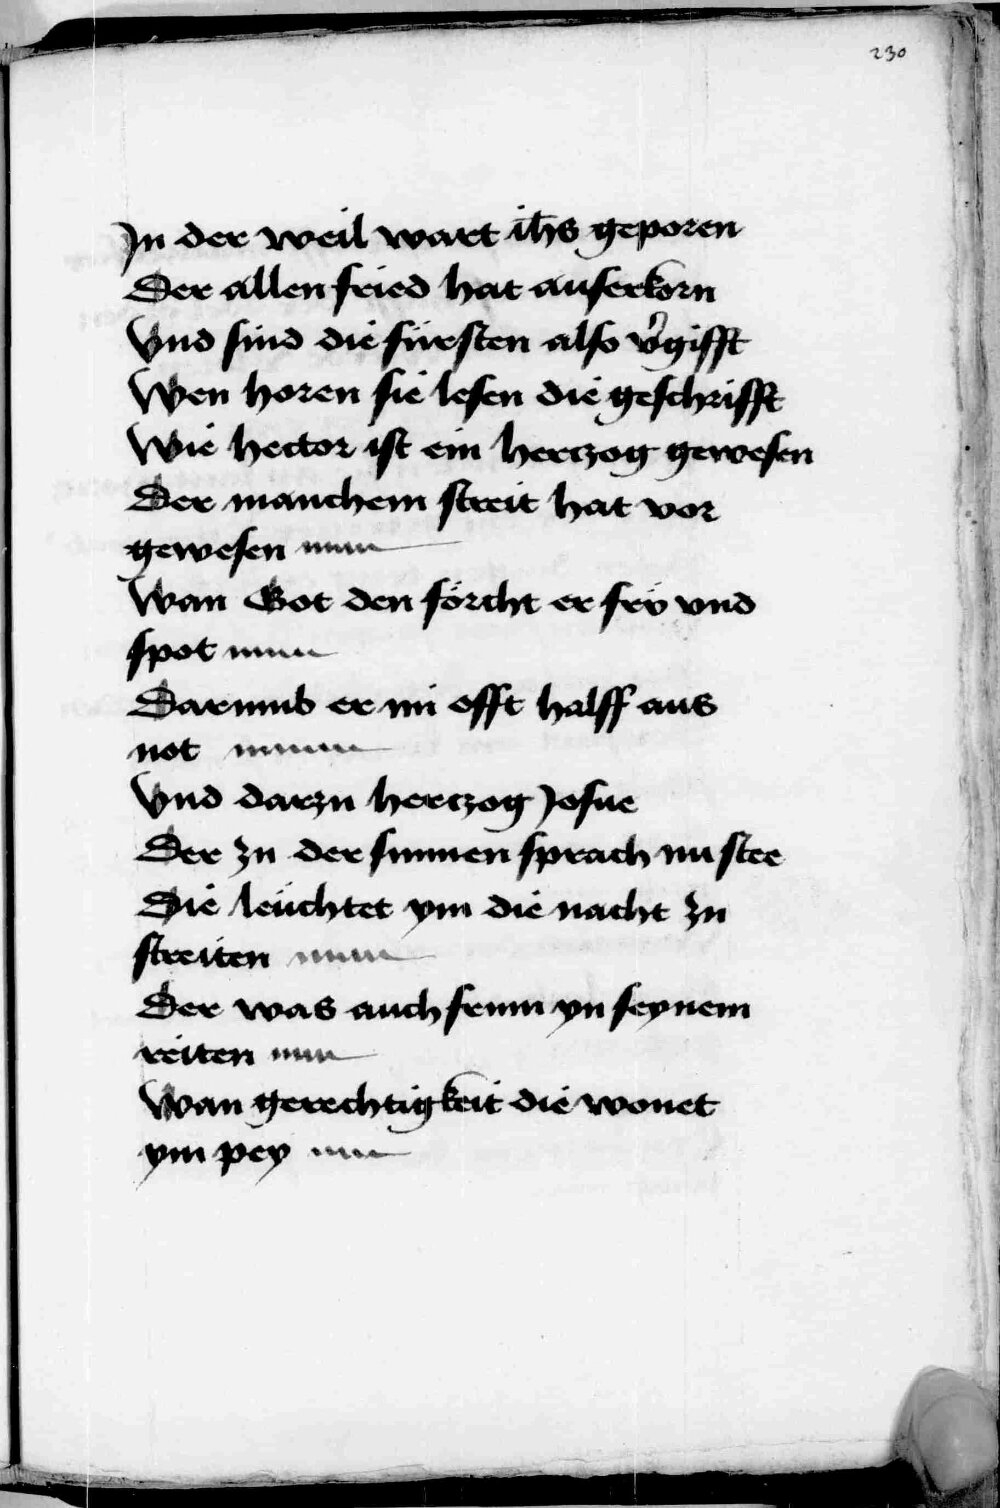 230
Jn der weil wart ih̄s geporen
Der allen fried hat auserkorn
Vnd sind die fürsten also v̉gifft
Wen horen sie lesen die geschrifft
Wie hector ist ein herczog gewesen
Der manchem streit hat vor
gewesen
Wan Got den förcht er frv̈ vnd
spot
Darumb er im offt halff aus
not
Vnd darzu herczog Josue
Der zu der sunnen sprach nu stee
Die leüchtet ym die nacht zu
streiten
Der was auch frum yn seynem
reiten
Wan gerechtigkeit die wonet
ym pey